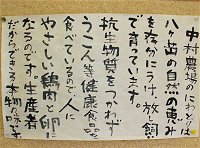 中村農場のにわとりは
八ヶ岳の自然の恵み
を存分にうけ、放し飼い
で育っています。
抗生物質をつかわず
うこん等健康食品を
食べているので、人に
やさしい鶏肉と卵に
なるのです。生産者
だからできる本物の味です